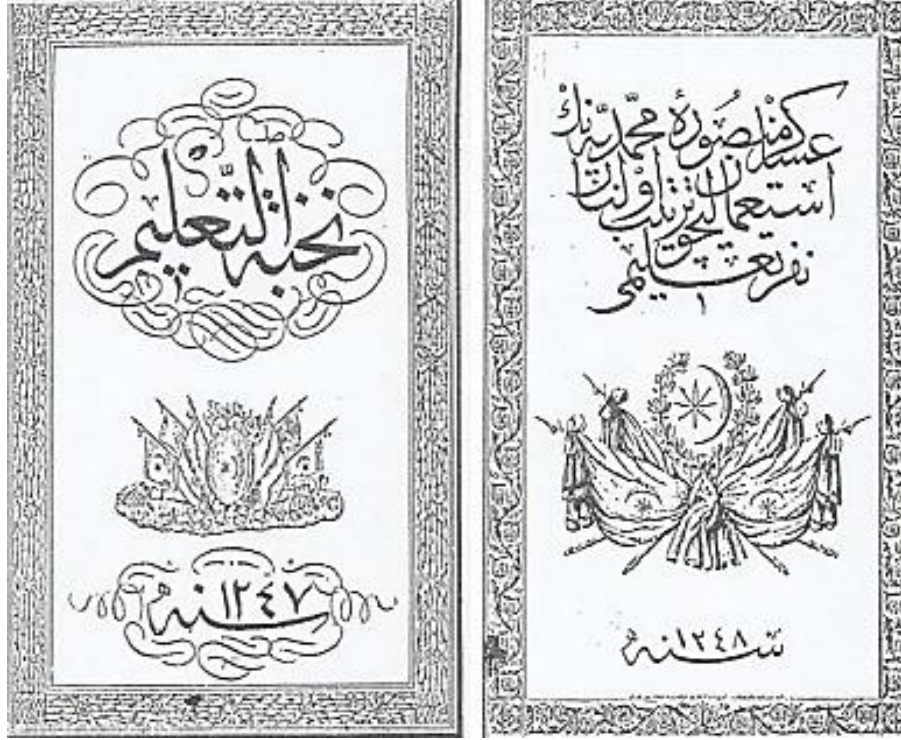 نخبة التعليم
سنه ١٢٤٧
عساكر منصورهٔ محمّديّه نك
استعمالیچون ترتیب اولنان
نفر تعلیمی
١
سنه ١٢٤٨